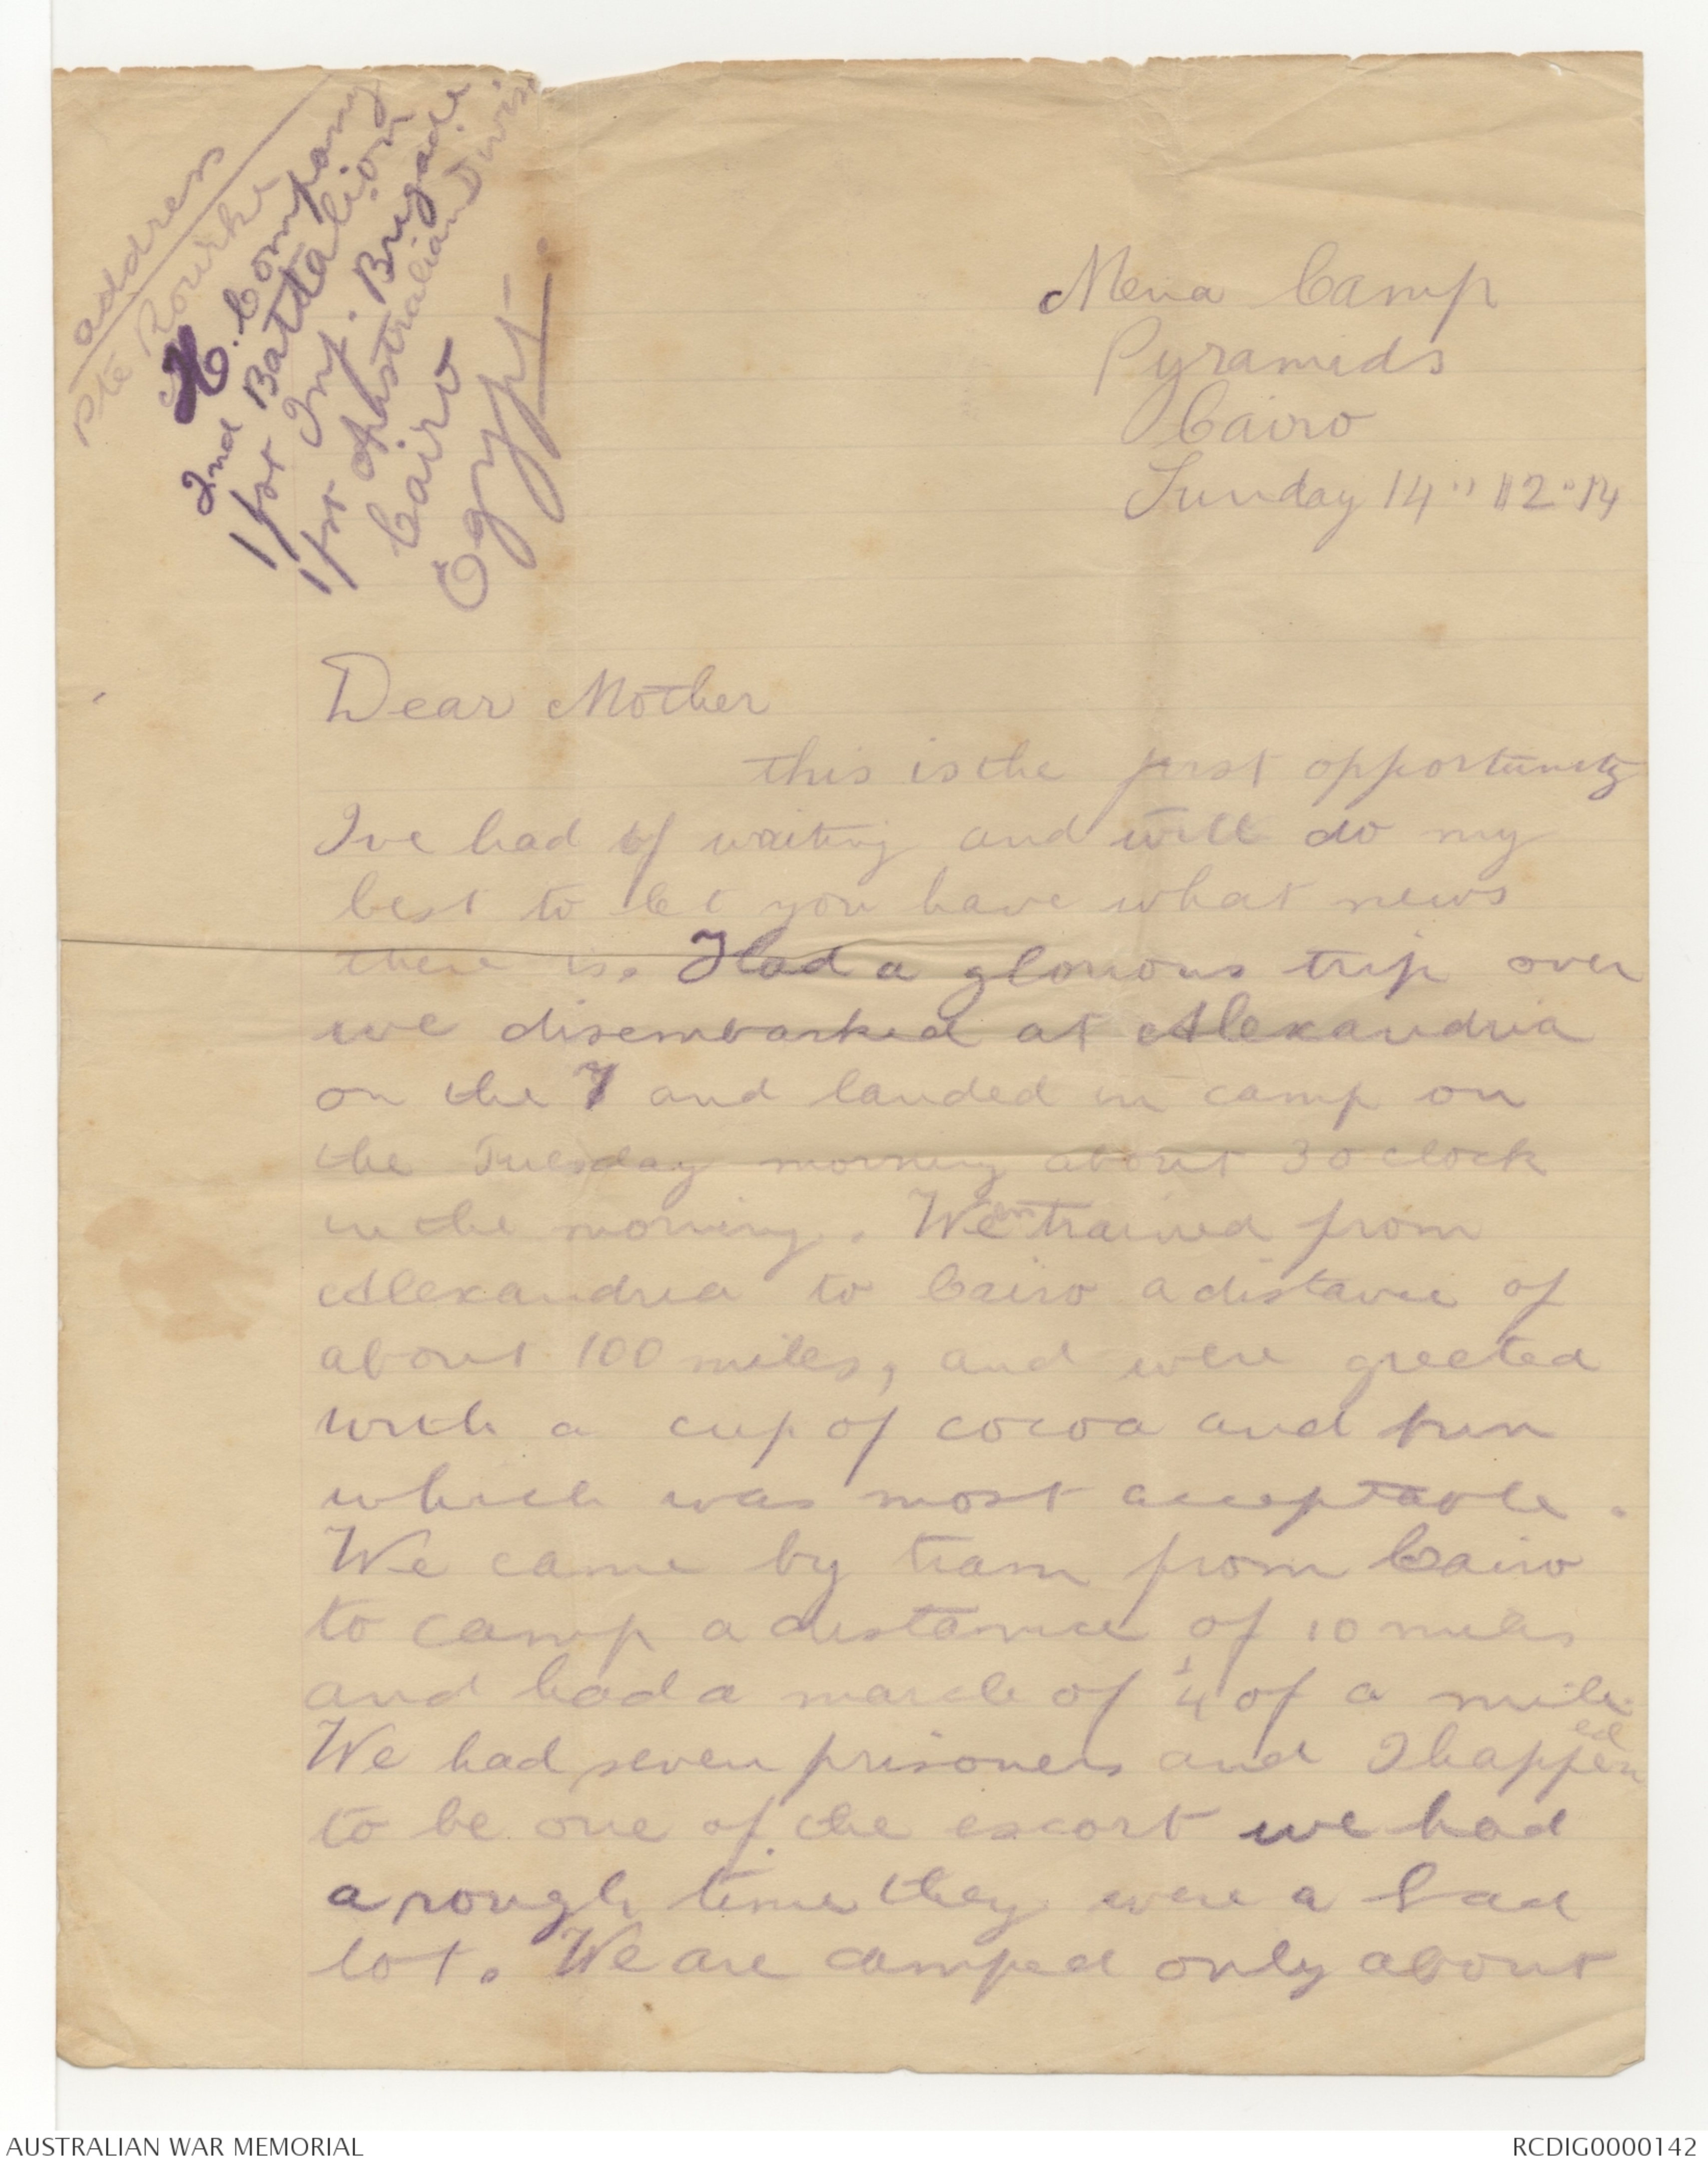 address
Pte Rourke
H. Company
2nd Battalion
1st Inf. Brigade
1st Australian Divis
Cairo
Egypt
Mena Camp
Pyramids
Cairo
Sunday 14" 12" 14
Dear Mother
this is the first opportunity
Ive had of writing and will do my
best to let you have what news
there is. Had a glorious trip over
we disembarked at Alexandria
on the 7 and landed in camp on
the Tuesday morning about 3 o clock
in the morning. We entrained from
Alexandria to Cairo a distance of
about 100 miles, and were greeted
with a cup of cocoa and bun
which was most acceptable.
We came by tram from Cairo
to camp a distance of 10 miles
and had a march of ¼ of a mile.
We had seven prisoners and I happened
to be one of the escort we had
a rough time they were a bad
lot. We are camped only about
AUSTRALIAN WAR MEMORIAL
RCDIG0000142